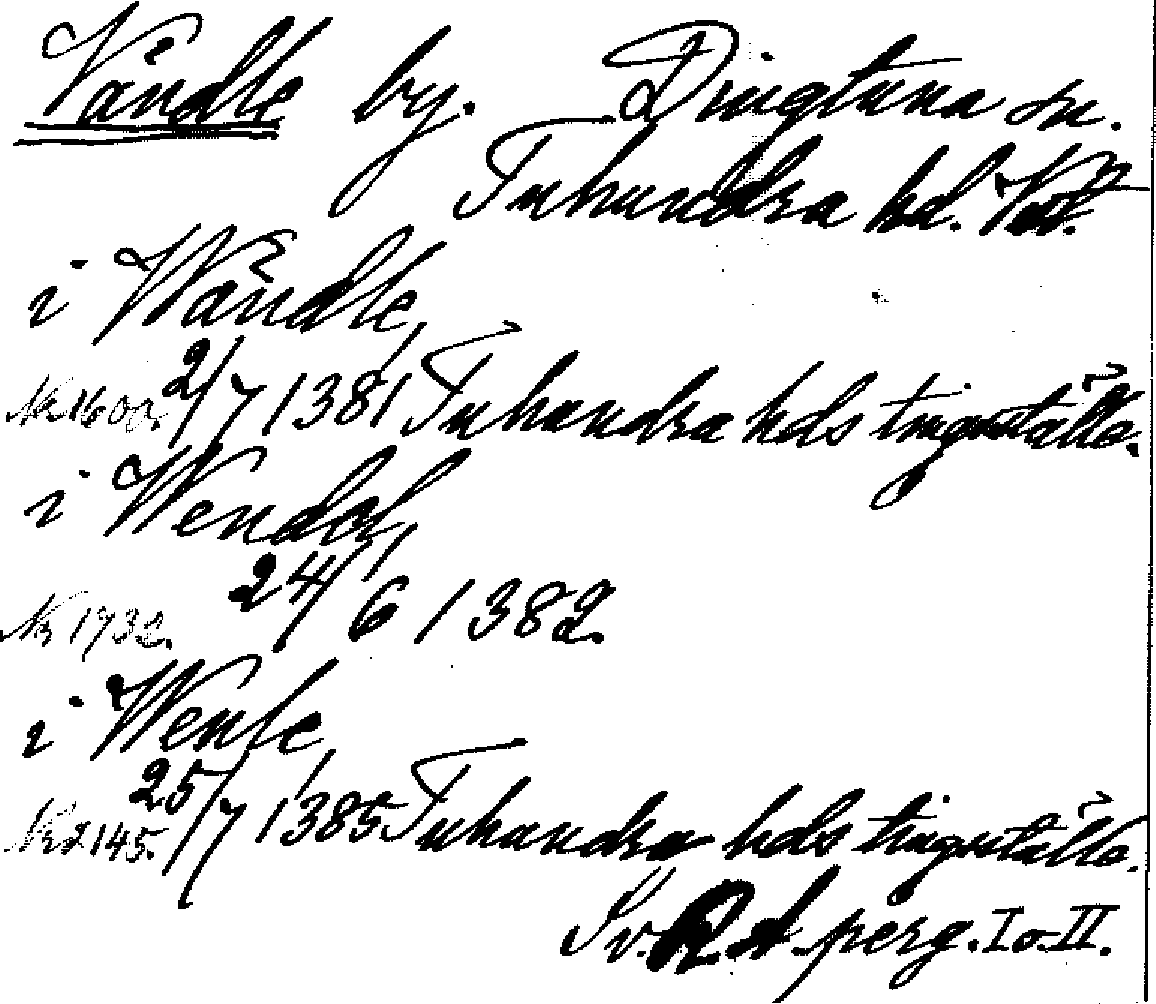 Vändle by. Dingtuna sn.
Tuhundra hd. Vstm.
i Wændle,
Nr 1600. 2/7 1381 Tuhundra hds tingställe.
i Wendel,
24/6 1382.
Nr 1732.
i Wenle,
25/7 1385 Tuhundra hds tingställe.
Nr 2145.
Sv. R. A. perg. I o. II.